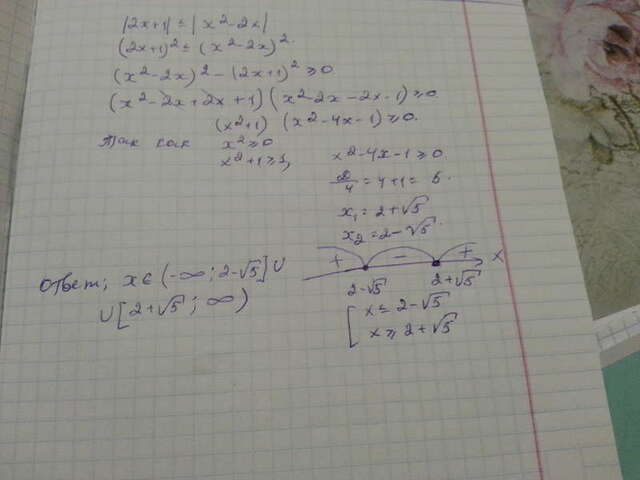 |2x+1| ≤ |x²-2x|
(2x+1)² ≤ (x²-2x)²
(x²-2x)² - (2x+1)² ≥ 0
(x²-2x+2x+1)(x²-2x-2x-1) ≥ 0
(x²+1) (x²-4x-1) ≥ 0.
Так как x² ≥ 0
x²+1 ≥ 1,
x²-4x-1 ≥ 0
D/4 = 4+1 = 5.
x₁ = 2+√5
x₂ = 2-√5
+ - + x
2-√5 2+√5
[ x ≤ 2-√5
x ≥ 2+√5
Ответ; x ∈ (-∞; 2-√5] ∪
∪ [2+√5; ∞)